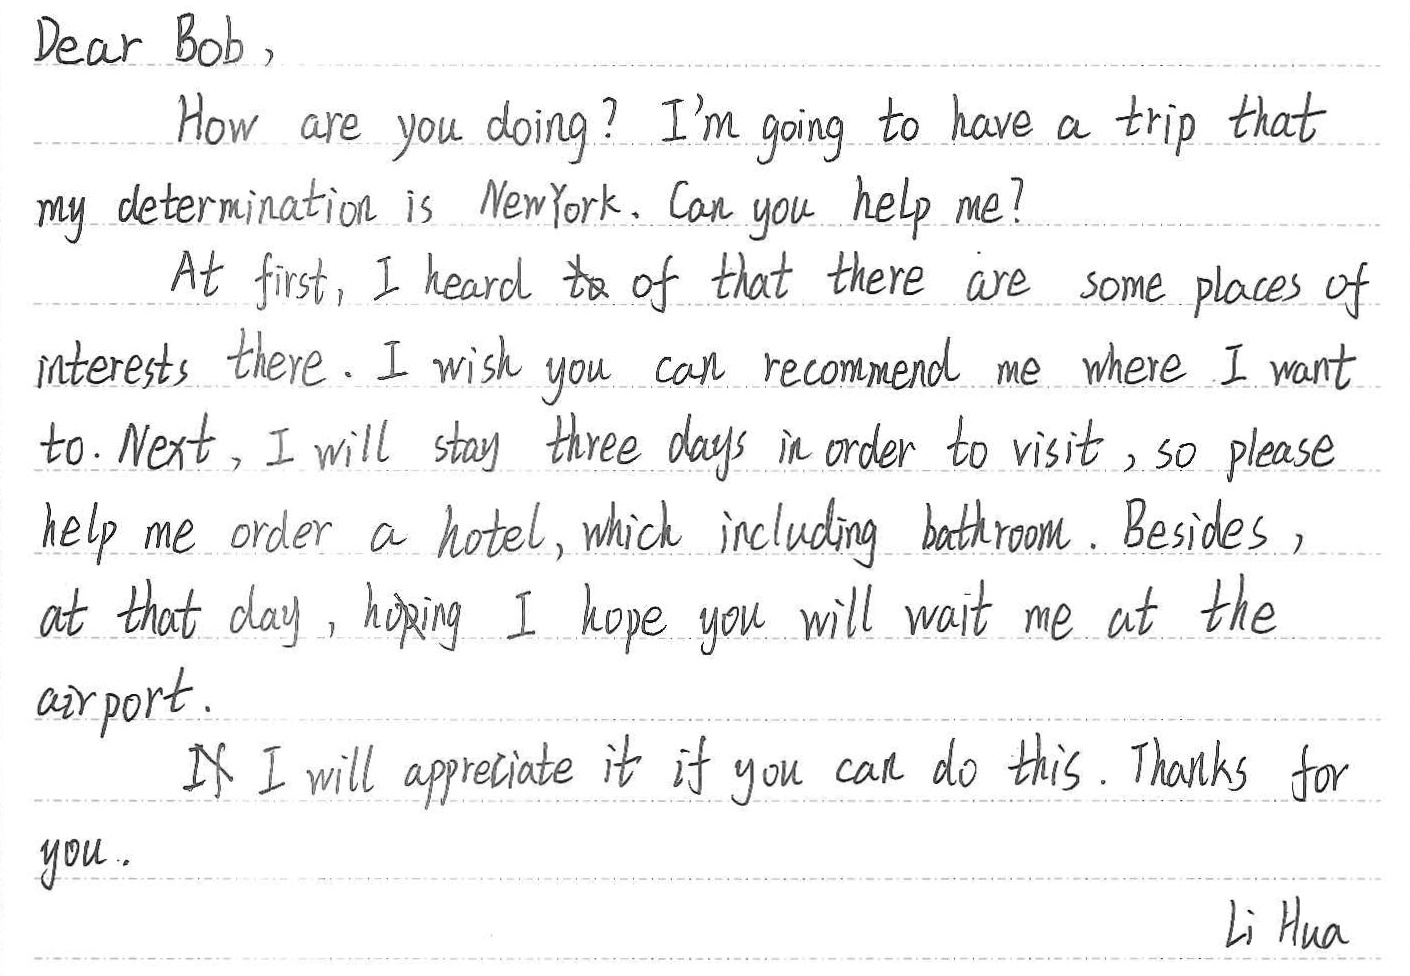 Dear Bob,
How are you doing? I'm going to have a trip that
my determination is NewYork. Can you help me?
At first, I heard to of that there are some places of
interests there. I wish you can recommend me where I want
to. Next, I will stay three days in order to visit, so please
help me order a hotel, which including bathroom. Besides,
at that day, hoping I hope you will wait me at the
airport.
If I will appreciate it if you can do this. Thanks for
you.
Li Hua